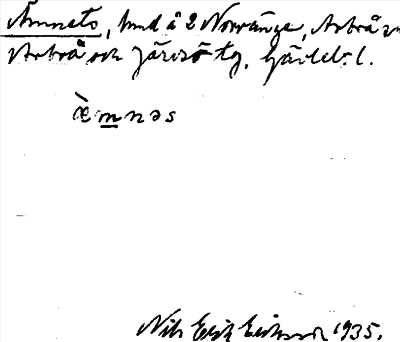 Ämnets, hmd å 2 Norränge, Arbrå sn
Arbrå och Järvsö tg, Gävleb. l.
æ̀mnəs
Nils Erik Eriksson 1935.